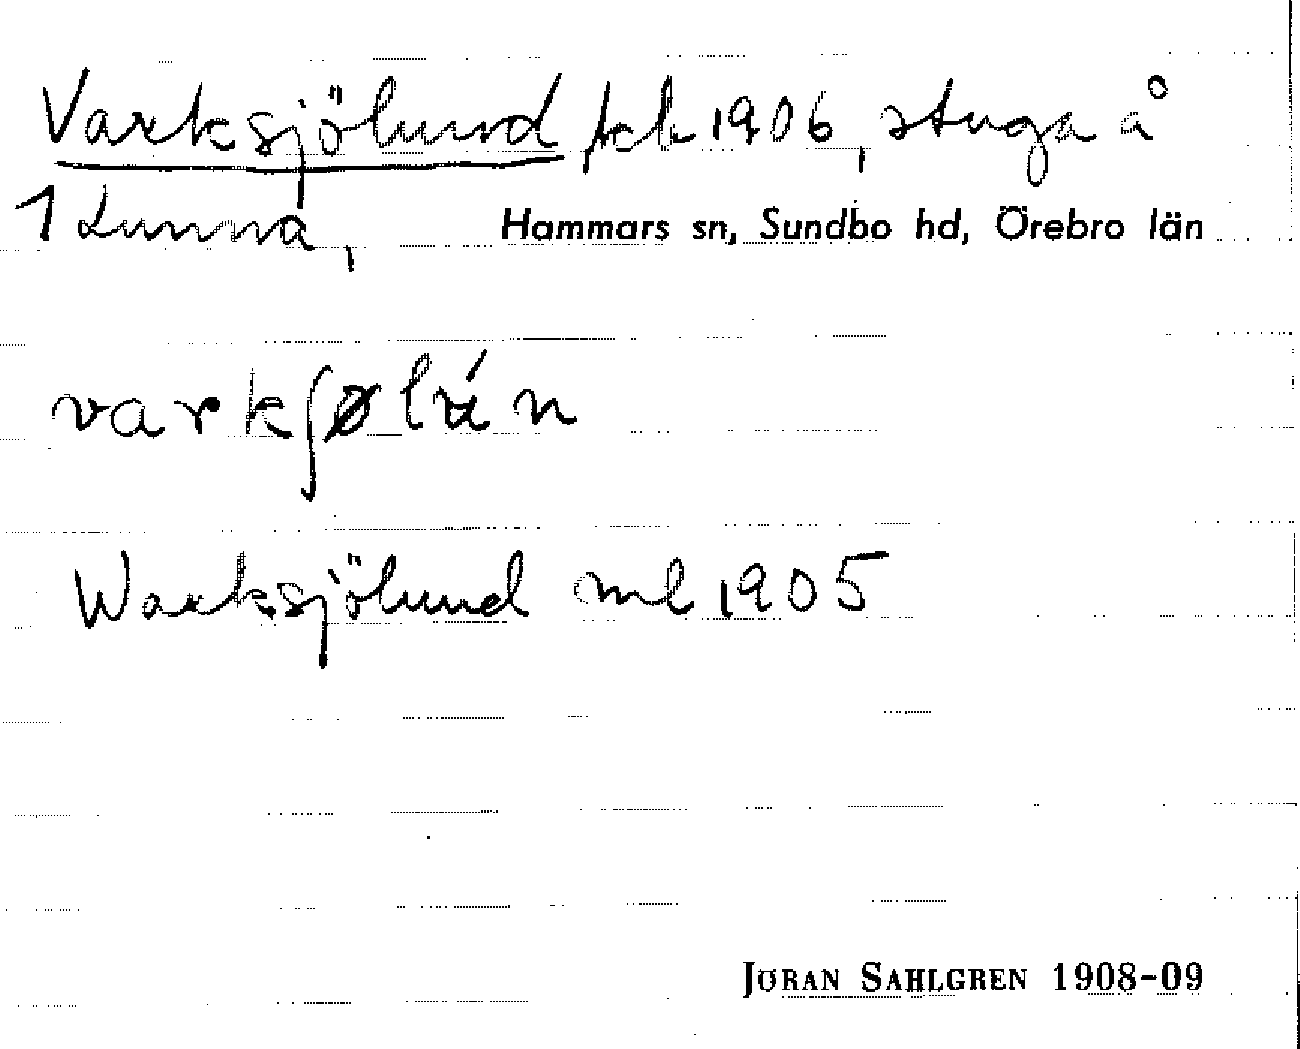 Varksjölund fck 1906, stuga å
1 Lunna, Hammars sn, Sundbo hd, Örebro län
varkʃølún
Warksjölund ml 1905
JÖRAN SAHLGREN 1908-09